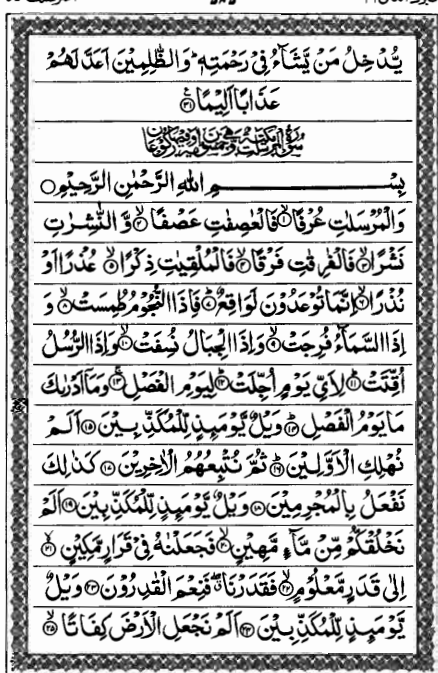 يُّدْخِلُ مَنْ يَّشَآءُ فِىْ رَحْمَتِهٖ ؕ وَالظّٰلِمِيْنَ اَعَدَّ لَهُمْ
عَذَابًا اَلِيْمًا ﴿۳۱﴾
بِسْمِ اللهِ الرَّحْمٰنِ الرَّحِيْمِ
وَالْمُرْسَلٰتِ عُرْفًا ﴿۱﴾ فَالْعٰصِفٰتِ عَصْفًا ﴿۲﴾ وَّ النّٰشِرٰتِ
نَشْرًا ﴿۳﴾ فَالْفٰرِقٰتِ فَرْقًا ﴿۴﴾ فَالْمُلْقِيٰتِ ذِكْرًا ﴿۵﴾ عُذْرًا اَوْ
نُذْرًا ﴿۶﴾ اِنَّمَا تُوْعَدُوْنَ لَوَاقِعٌ ﴿۷﴾ فَاِذَا النُّجُوْمُ طُمِسَتْ ﴿۸﴾ وَ
اِذَا السَّمَآءُ فُرِجَتْ ﴿۹﴾ وَ اِذَا الْجِبَالُ نُسِفَتْ ﴿۱۰﴾ وَاِذَا الرُّسُلُ
اُقِّتَتْ ﴿۱۱﴾ لِاَيِّ يَوْمٍ اُجِّلَتْ ﴿۱۲﴾ لِيَوْمِ الْفَصْلِ ﴿۱۳﴾ وَمَاۤ اَدْرٰىكَ
مَا يَوْمُ الْفَصْلِ ﴿۱۴﴾ وَيْلٌ يَّوْمَئِذٍ لِّلْمُكَذِّبِيْنَ ﴿۱۵﴾ اَلَمْ
نُهْلِكِ الْاَوَّلِيْنَ ﴿۱۶﴾ ثُمَّ نُتْبِعُهُمُ الْاٰخِرِيْنَ ﴿۱۷﴾ كَذٰلِكَ
نَفْعَلُ بِالْمُجْرِمِيْنَ ﴿۱۸﴾ وَيْلٌ يَّوْمَئِذٍ لِّلْمُكَذِّبِيْنَ ﴿۱۹﴾ اَلَمْ
نَخْلُقْكُّمْ مِّنْ مَّآءٍ مَّهِيْنٍ ﴿۲۰﴾ فَجَعَلْنٰهُ فِىْ قَرَارٍ مَّكِيْنٍ ﴿۲۱﴾
اِلٰى قَدَرٍ مَّعْلُوْمٍ ﴿۲۲﴾ فَقَدَرْنَا ۖ فَنِعْمَ الْقٰدِرُوْنَ ﴿۲۳﴾ وَيْلٌ
يَّوْمَئِذٍ لِّلْمُكَذِّبِيْنَ ﴿۲۴﴾ اَلَمْ نَجْعَلِ الْاَرْضَ كِفَاتًا ﴿۲۵﴾